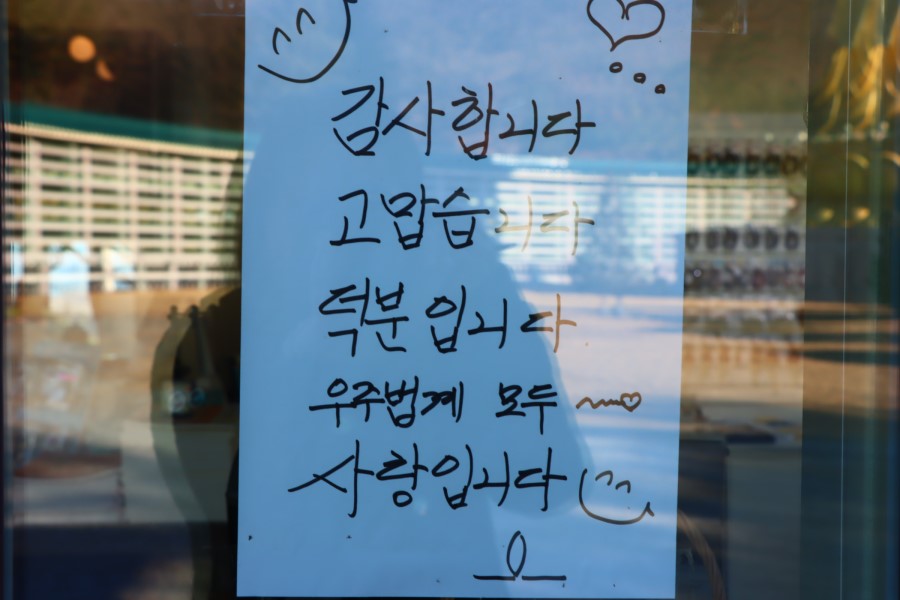 감사합니다
고맙습니다
덕분입니다
우주법계 모두 ~♡
사랑입니다